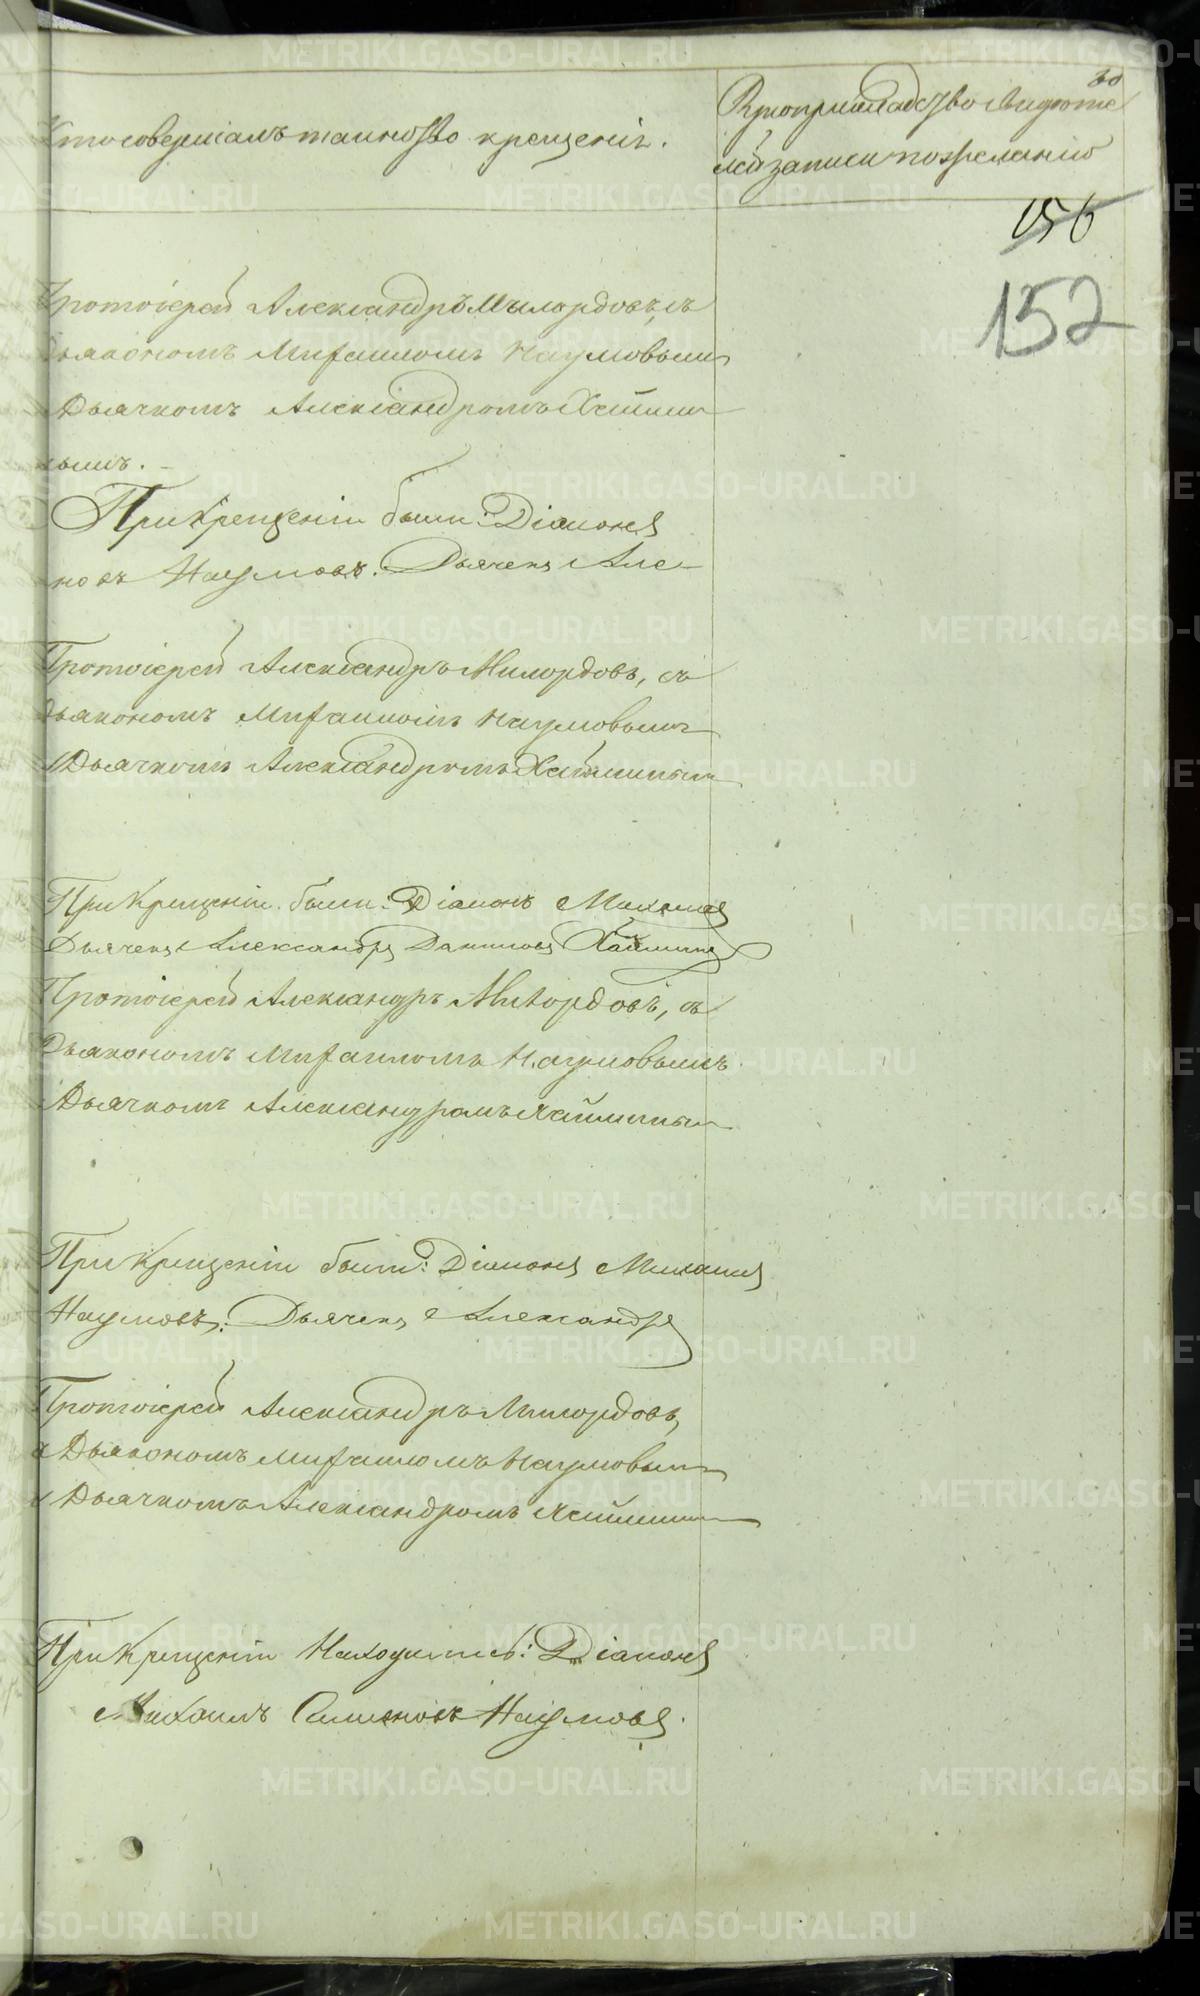 Кто совершалъ таинство крещенія.
Рукоприкладство свидѣте
лей записи по желанію
30
156
152
Протоіерей Александръ Милордовъ, съ
Дьякономъ Михаиломъ Наумовымъ
Дьячкомъ Александромъ Хайми
нымъ.
При Крещеніи были: Діаконъ
новъ Наумовъ. Дьячекъ Але-
Протоіерей Александръ Милордовъ, съ
Дьякономъ Михаиломъ Наумовымъ
Дьячкомъ Александромъ Хайминым
При Крещеніи были: Діаконъ Михаилъ
Дьячекъ Александръ Даниловъ Хайминъ
Протоіерей Александръ Милордовъ, съ
Дьякономъ Михаиломъ Наумовымъ
Дьячкомъ Александромъ Хайминым
При Крещеніи были: Діаконъ Михаилъ
Наумовъ. Дьячекъ Александръ
Протоіерей Александръ Милордовъ,
Дьякономъ Михаиломъ Наумовым
и Дьячкомъ Александромъ Хаймин
При Крещеніи Находились: Діаконъ
Михаилъ Симоновъ Наумовъ.
METRIKI.GASO-URAL.RU